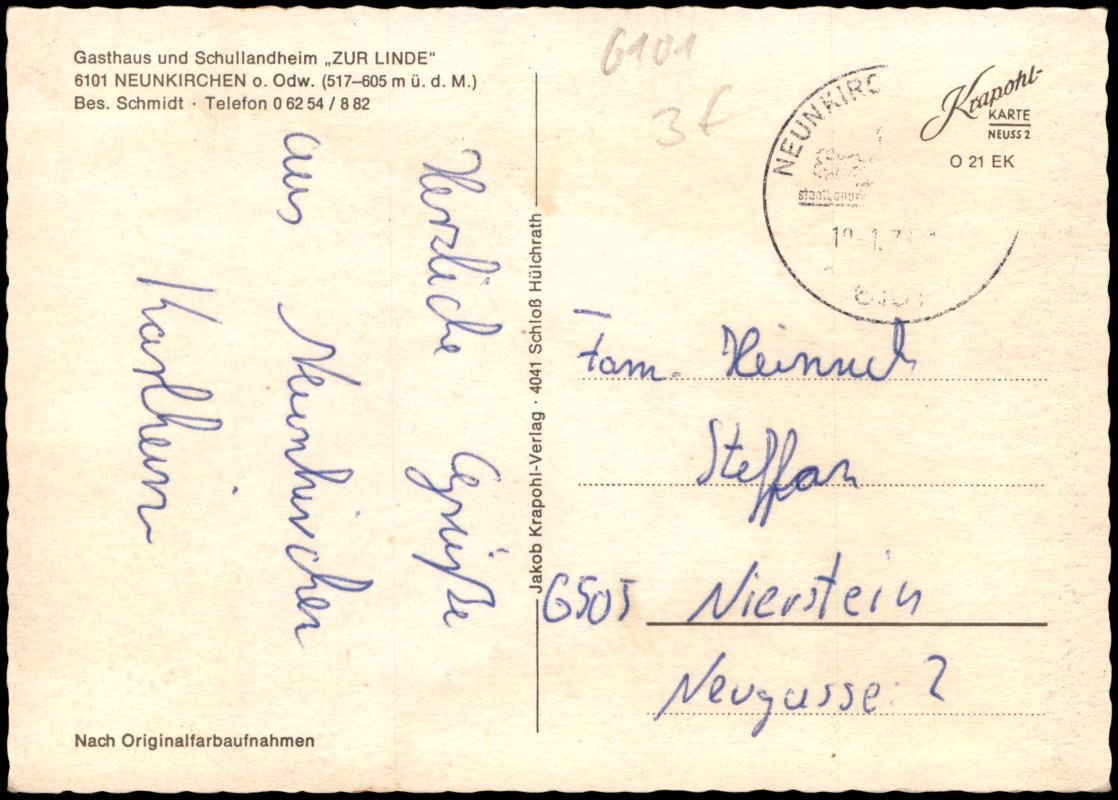 Gasthaus und Schullandheim „ZUR LINDE“
6101 NEUNKIRCHEN o. Odw. (517–605 m ü. d. M.)
Bes. Schmidt · Telefon 0 62 54 / 8 82
Herzliche Grüße
aus Neunkirchen
Karlheinz
Nach Originalfarbaufnahmen
Jakob Krapohl-Verlag · 4041 Schloß Hülchrath
6101
3 f
NEUNKIRC
6101
Krapohl-
KARTE
NEUSS 2
O 21 EK
Fam. Heinrich
Steffan
6505 Nierstein
Neugasse 2